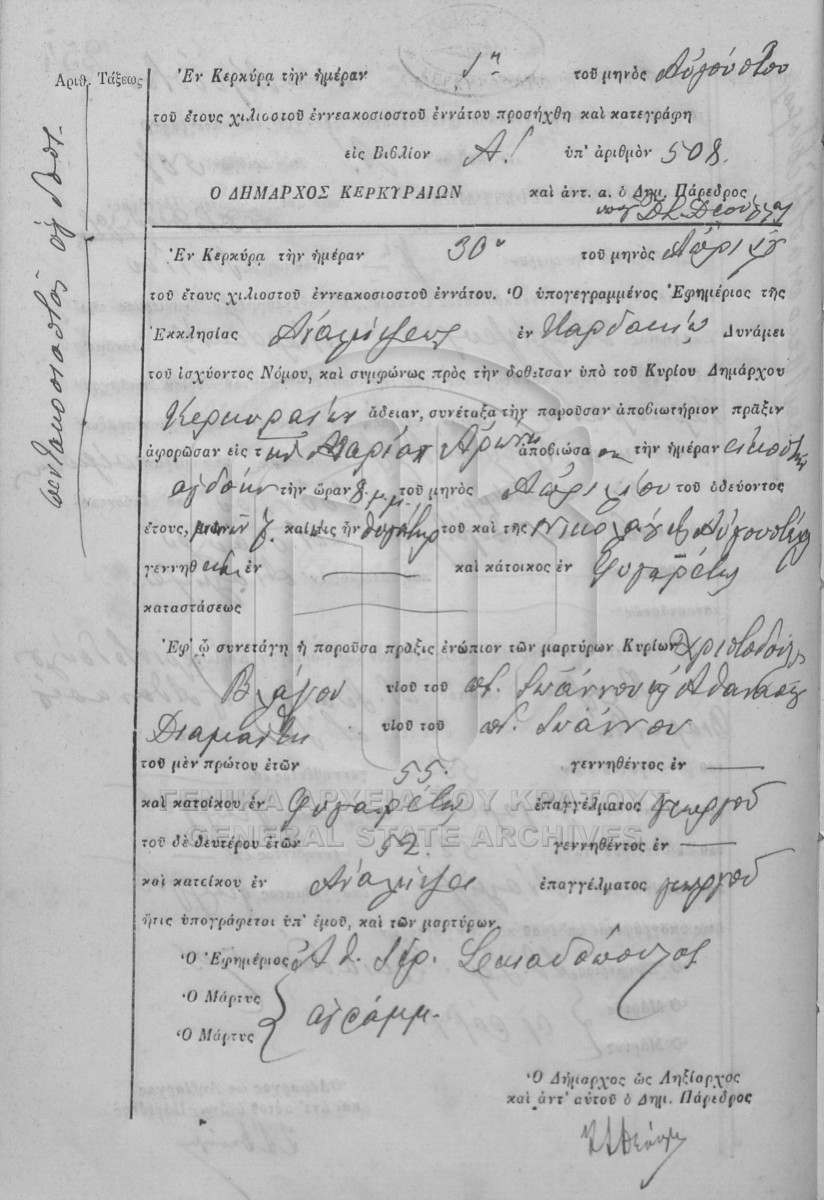 Ἀριθ. Τάξεως
πεντακοσιοστὸς ὄγδοος.
Ἐν Κερκύρᾳ τὴν ἡμέραν 1η τοῦ μηνὸς Αὐγούστου
τοῦ ἔτους χιλιοστοῦ ἐννεακοσιοστοῦ ἐννάτου προσήχθη καὶ κατεγράφη
εἰς Βιβλίον Α! ὑπ' ἀριθμὸν 508.
Ὁ ΔΗΜΑΡΧΟΣ ΚΕΡΚΥΡΑΙΩΝ καὶ ἀντ. α. ὁ Δημ. Πάρεδρος
Ἐν Κερκύρᾳ τὴν ἡμέραν 30ην τοῦ μηνὸς Ἀπριλίου
τοῦ ἔτους χιλιοστοῦ ἐννεακοσιοστοῦ ἐννάτου. Ὁ ὑπογεγραμμένος Ἐφημέριος τῆς
Ἐκκλησίας Ἀναλήψεως ἐν Δυνάμει
τοῦ ἰσχύοντος Νόμου, καὶ συμφώνως πρὸς τὴν δοθεῖσαν ὑπὸ τοῦ Κυρίου Δημάρχου
Κερκυραίων ἄδειαν, συνέταξα τὴν παροῦσαν ἀποβιωτήριον πρᾶξιν
ἀφορῶσαν εἰς τὴν Μαρίαν ἀποβιώσασαν τὴν ἡμέραν εἰκοστὴν
ὀγδόην τὴν ὥραν 8 μ.μ. τοῦ μηνὸς Ἀπριλίου τοῦ ὁδεύοντος
ἔτους, καὶ ἥτις ἦν θυγάτηρ τοῦ καὶ τῆς Νικολάου καὶ Αὐγουστίνας
γεννηθεῖσα ἐν — καὶ κάτοικος ἐν
καταστάσεως
Ἐφ' ᾧ συνετάγη ἡ παροῦσα πρᾶξις ἐνώπιον τῶν μαρτύρων Κυρίων Χριστοδούλου
Βλάχου υἱοῦ τοῦ ποτ. Ἰωάννου καὶ Ἀθανασίου
Διαμάντη υἱοῦ τοῦ ποτ. Ἰωάννου
τοῦ μὲν πρώτου ἐτῶν 55. γεννηθέντος ἐν —
καὶ κατοίκου ἐν ἐπαγγέλματος γεωργοῦ
ΓΕΝΙΚΑ ΑΡΧΕΙΑ ΤΟΥ ΚΡΑΤΟΥΣ
GENERAL STATE ARCHIVES
τοῦ δὲ δευτέρου ἐτῶν 52. γεννηθέντος ἐν —
καὶ κατοίκου ἐν Ἀναλήψει ἐπαγγέλματος γεωργοῦ
ἥτις ὑπογράφεται ὑπ' ἐμοῦ, καὶ τῶν μαρτύρων
Ὁ Ἐφημέριος
Ὁ Μάρτυς
ἀγράμμ.
Ὁ Μάρτυς
Ὁ Δήμαρχος ὡς Ληξίαρχος
καὶ ἀντ' αὐτοῦ ὁ Δημ. Πάρεδρος